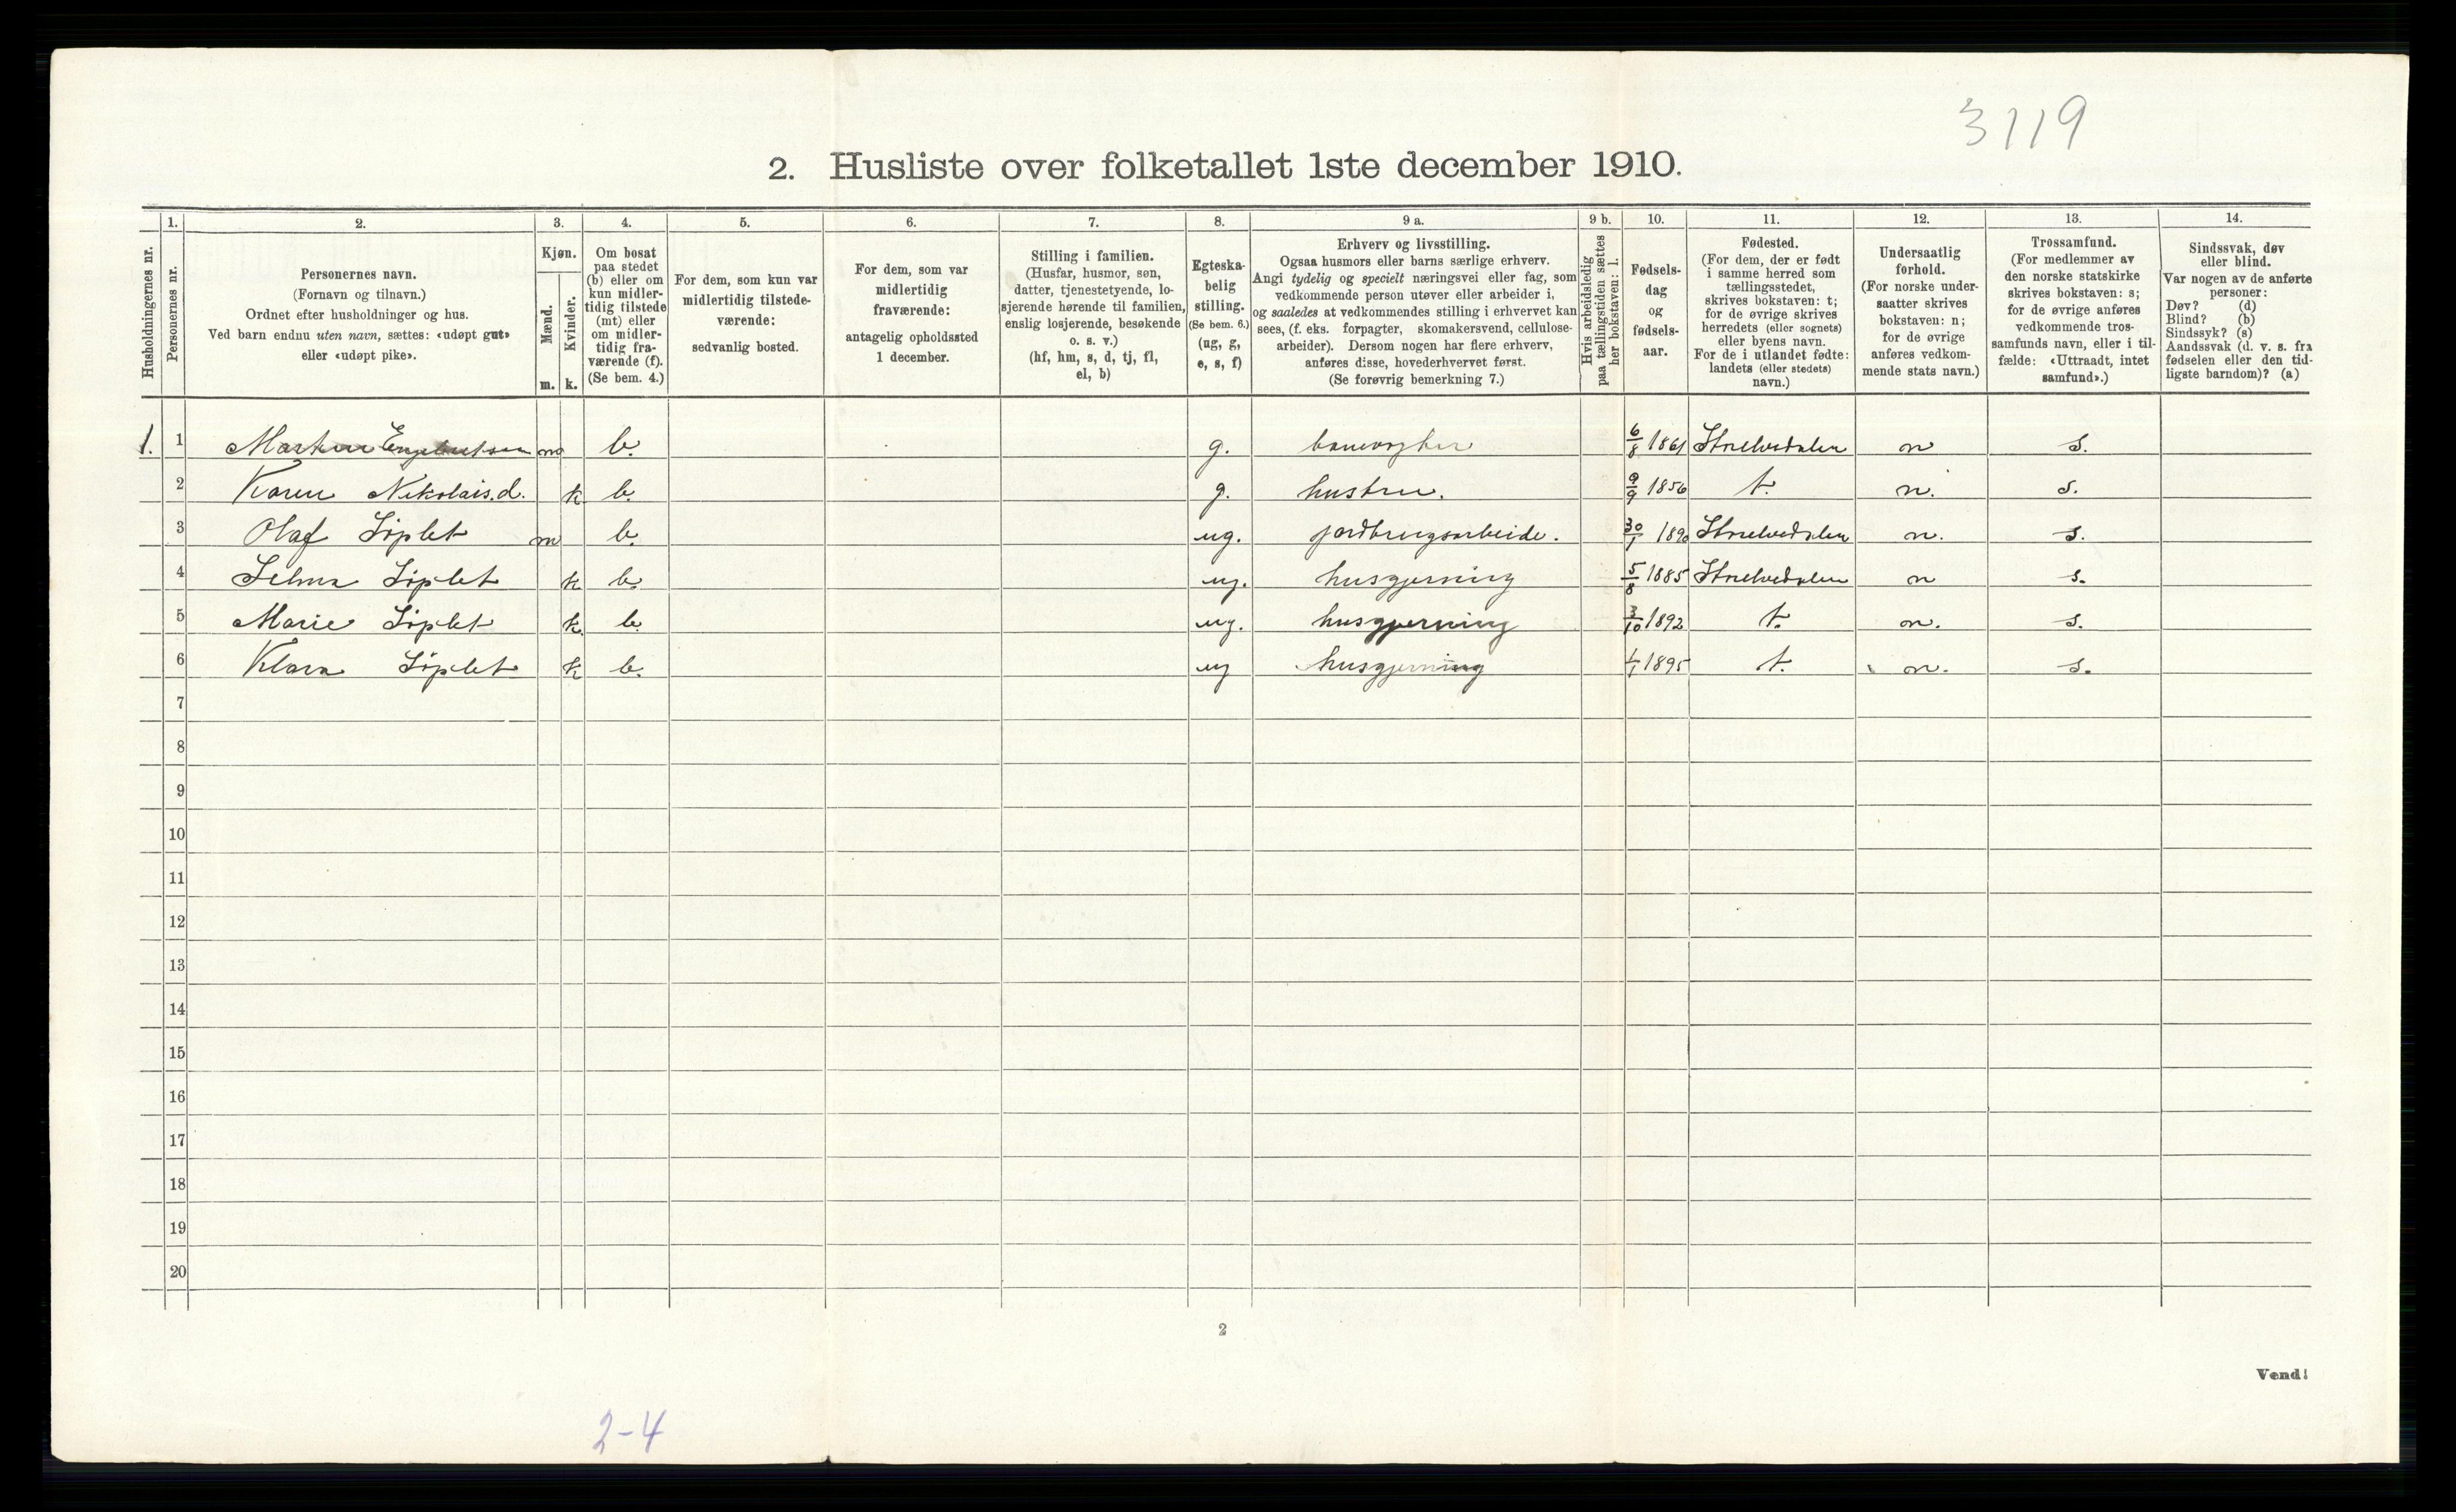 3119
2. Husliste over folketallet 1ste december 1910.
Husholdningernes nr.
1.
Personernes nr.
2.
Personernes navn.
(Fornavn og tilnavn.)
Ordnet efter husholdninger og hus.
Ved barn endnu uten navn, sættes: «udøpt gut»
eller «udøpt pike».
3.
Kjøn.
Mænd.
m.
Kvinder.
k.
4.
Om bosat
paa stedet
(b) eller om
kun midler-
tidig tilstede
(mt) eller
om midler-
tidig fra-
værende (f).
(Se bem. 4.)
5.
For dem, som kun var
midlertidig tilstede-
værende:
sedvanlig bosted.
6.
For dem, som var
midlertidig
fraværende:
antagelig opholdssted
1 december.
7.
Stilling i familien.
(Husfar, husmor, søn,
datter, tjenestetyende, lo-
sjerende hørende til familien,
enslig losjerende, besøkende
o. s. v.)
(hf, hm, s, d, tj, fl,
el, b)
8.
Egteska-
belig
stilling.
(Se bem. 6.)
(ug, g,
e, s, f)
9 a.
Erhverv og livsstilling.
Ogsaa husmors eller barns særlige erhverv.
Angi tydelig og specielt næringsvei eller fag, som
vedkommende person utøver eller arbeider i,
og saaledes at vedkommendes stilling i erhvervet kan
sees, (f. eks. forpagter, skomakersvend, cellulose-
arbeider). Dersom nogen har flere erhverv,
anføres disse, hovederhvervet først.
(Se forøvrig bemerkning 7.)
9 b.
Hvis arbeidsledig
paa tællingstiden sættes
her bokstaven: l.
10.
Fødsels-
dag
og
fødsels-
aar.
11.
Fødested.
(For dem, der er født
i samme herred som
tællingsstedet,
skrives bokstaven: t;
for de øvrige skrives
herredets (eller sognets)
eller byens navn.
For de i utlandet fødte:
landets (eller stedets)
navn.)
12.
Undersaatlig
forhold.
(For norske under-
saatter skrives
bokstaven: n;
for de øvrige
anføres vedkom-
mende stats navn.)
13.
Trossamfund.
(For medlemmer av
den norske statskirke
skrives bokstaven: s;
for de øvrige anføres
vedkommende tros-
samfunds navn, eller i til-
fælde: «Uttraadt, intet
samfund».)
14.
Sindssvak, døv
eller blind.
Var nogen av de anførte
personer:
Døv? (d)
Blind? (b)
Sindssyk? (s)
Aandssvak (d. v. s. fra
fødselen eller den tid-
ligste barndom)? (a)
1. 1 Martin Engebretsen m b. g. banevogter 6/8 1861 Storelvedalen n s.
2 Karen Nikolais.d. k b. g. hustru. 9/9 1856 t. n. s.
3 Olaf Siplet m b. ug. jordbrugsarbeide. 30/1 1890 Storelvedalen n. s.
4 Selma Siplet k b. ug. husgjerning 5/8 1885 Storelvedalen n s.
5 Marie Siplet k b. ug. husgjerning 3/10 1892 t. n. s.
6 Klara Siplet k b. ug husgjerning 1/1 1895 t. n. s.
7
8
9
10
11
12
13
14
15
16
17
18
19
20
2
Vend!
2-4